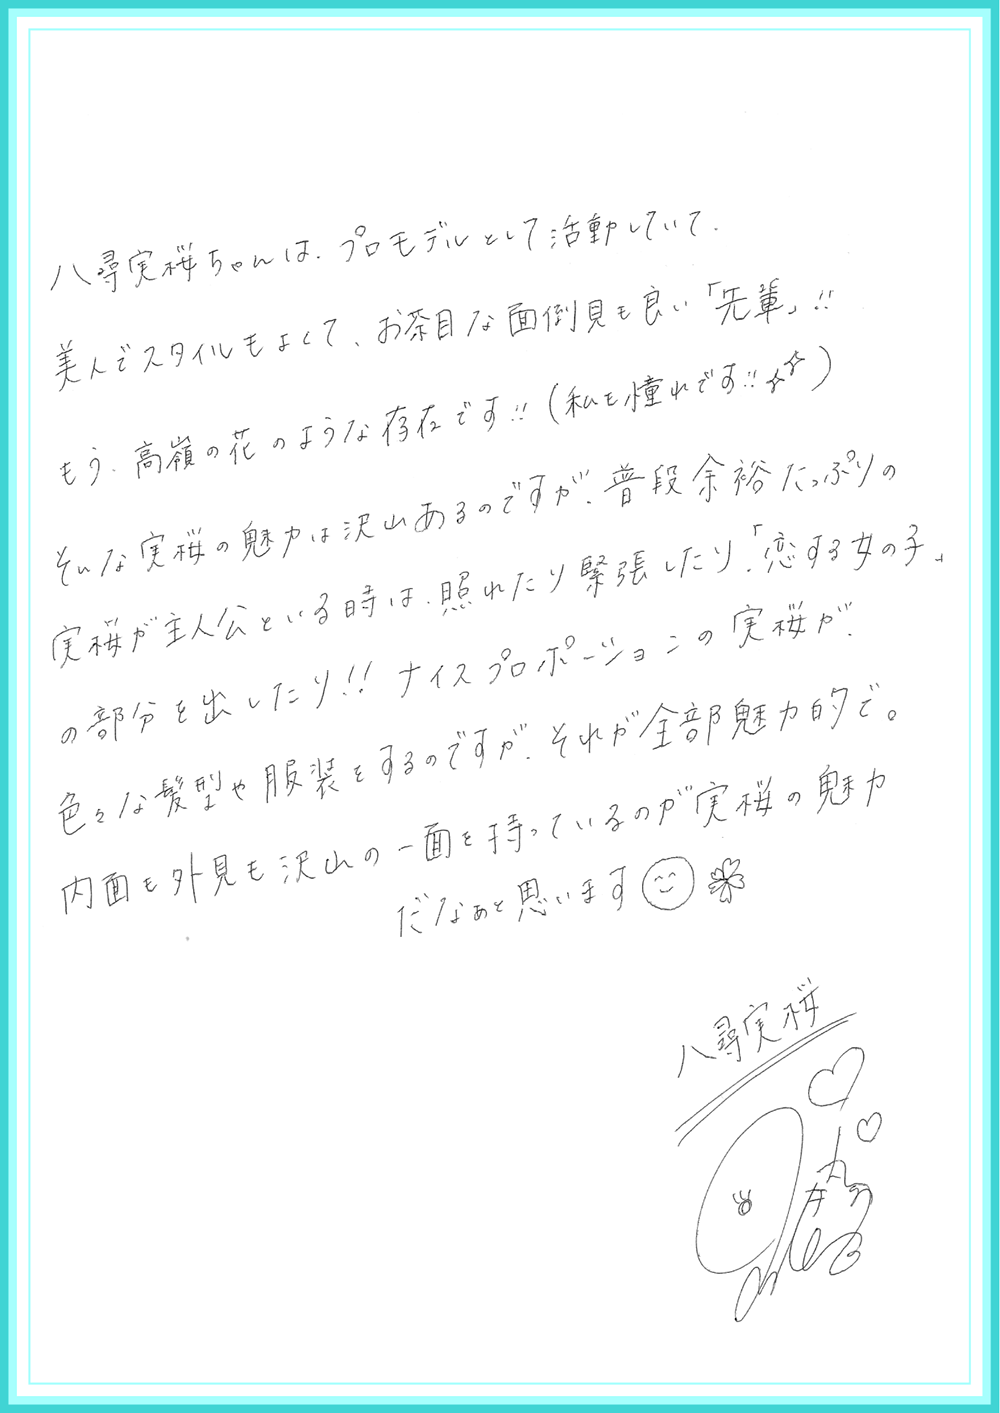 八尋実桜ちゃんは、プロモデルとして活動していて、
美人でスタイルもよくて、お茶目な面倒見も良い「先輩」!!
もう、高嶺の花のような存在です!!(私も憧れです!!)
そんな実桜の魅力は沢山あるのですが、普段余裕たっぷりの
実桜が主人公といる時は、照れたり緊張したり、「恋する女の子」
の部分を出したり!! ナイスプロポーションの実桜が、
色々な髪型や服装をするのですが、それが全部魅力的で。
内面も外見も沢山の一面を持っているのが実桜の魅力
だなぁと思います
八尋実桜